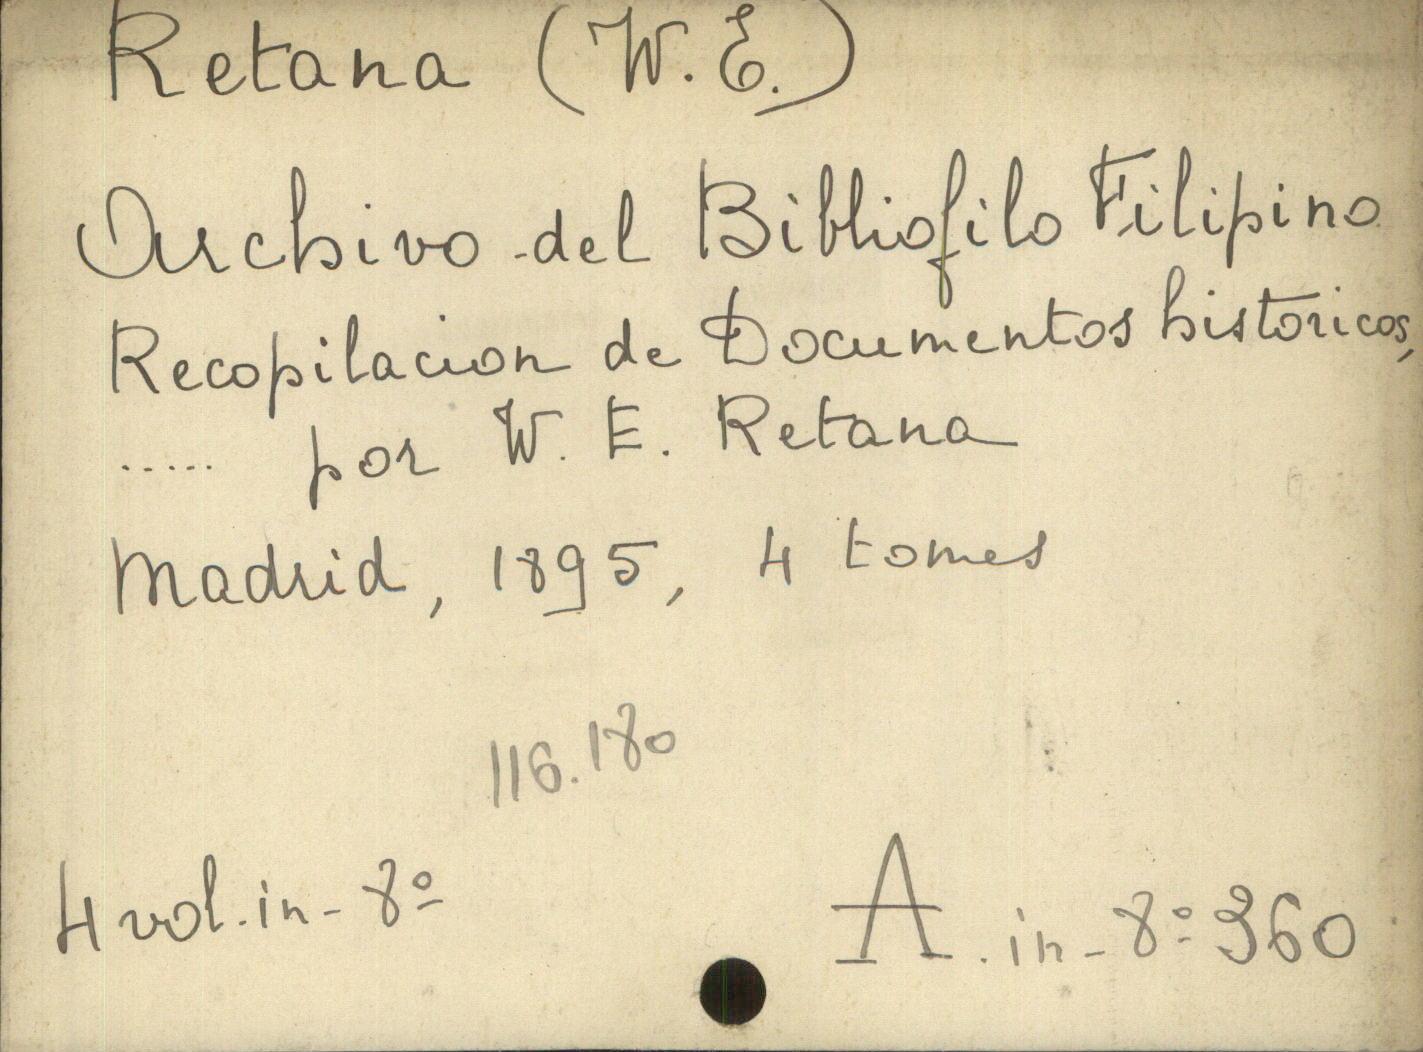 Retana (W. E.)
Archivo del Bibliofilo Filipino
Recopilacion de Documentos historicos,
..... por W. E. Retana
Madrid, 1895, 4 tomes
116.180
4 vol. in-8º
A. in-8º 360